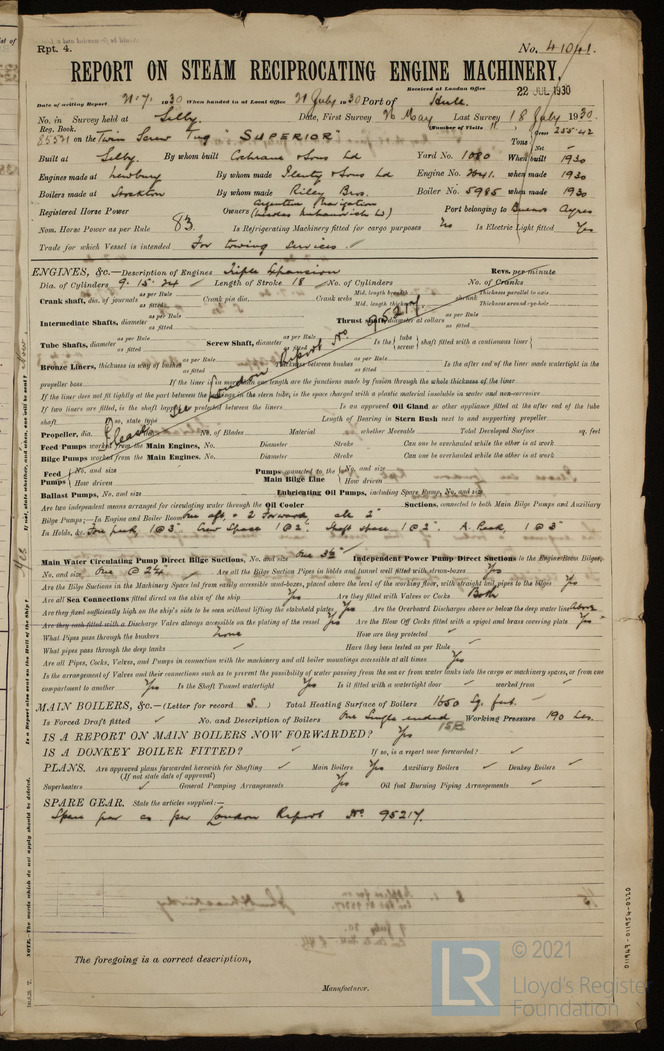 Rpt. 4. No. 41041.
REPORT ON STEAM RECIPROCATING ENGINE MACHINERY.
Received at London Office 22 JUL 1930
Date of writing Report 21.7. 1930 When handed in at Local Office 21 July 1930 Port of Hull
No. in Survey held at Selby. Date, First Survey 26 May Last Survey 18 July 1930.
Reg. Book. (Number of Visits 11
85521 on the Twin Screw Tug "SUPERIOR" Tons Gross 255.42 Net
Built at Selby. By whom built Cochrane & Sons Ld Yard No. 1080 When built 1930
Engines made at Newbury By whom made Plenty & Sons Ld Engine No. 2641. when made 1930
Boilers made at Stockton By whom made Riley Bros. Boiler No. 5985 when made 1930
Registered Horse Power Owners Argentine Navigation Port belonging to Buenos Ayres
Nom. Horse Power as per Rule 83. Is Refrigerating Machinery fitted for cargo purposes No Is Electric Light fitted Yes
Trade for which Vessel is intended For towing services.
ENGINES, &c.—Description of Engines Triple Expansion Revs. per minute
Dia. of Cylinders 9. 15. 24 Length of Stroke 18 No. of Cylinders No. of Cranks
Crank shaft, dia. of journals as per Rule as fitted Crank pin dia. Crank webs Mid. length breadth Mid. length thickness shrunk Thickness parallel to axis Thickness around eye-hole
Intermediate Shafts, diameter as per Rule as fitted Thrust shaft, diameter at collars as per Rule as fitted
Tube Shafts, diameter as per Rule as fitted Screw Shaft, diameter as per Rule as fitted Is the tube screw shaft fitted with a continuous liner
Bronze Liners, thickness in way of bushes as per Rule as fitted Thickness between bushes as per Rule as fitted Is the after end of the liner made watertight in the
propeller boss If the liner is in more than one length are the junctions made by fusion through the whole thickness of the liner
If the liner does not fit tightly at the part between the bearings in the stern tube, is the space charged with a plastic material insoluble in water and non-corrosive
If two liners are fitted, is the shaft lapped or protected between the liners Is an approved Oil Gland or other appliance fitted at the after end of the tube
shaft If so, state type Length of Bearing in Stern Bush next to and supporting propeller
Please see London Report No. 95217.
Propeller, dia. No. of Blades Material whether Moveable Total Developed Surface sq. feet
Feed Pumps worked from the Main Engines, No. Diameter Stroke Can one be overhauled while the other is at work
Bilge Pumps worked from the Main Engines, No. Diameter Stroke Can one be overhauled while the other is at work
Feed Pumps No. and size How driven Pumps connected to the Main Bilge Line No. and size How driven
Ballast Pumps, No. and size Lubricating Oil Pumps, including Spare Pump, No. and size
Are two independent means arranged for circulating water through the Oil Cooler Suctions, connected to both Main Pumps and Auxiliary
Bilge Pumps;—In Engine and Boiler Room One aft & 2 forward all 2"
In Holds, &c. Fore peak 1 @ 3" Crew Space 1 @ 2" Shaft space 1 @ 2" A. Peak 1 @ 3"
Main Water Circulating Pump Direct Bilge Suctions, No. and size One 3½" Independent Power Pump Direct Suctions to the Engine Room Bilges,
No. and size One @ 2¼" Are all the Bilge Suction Pipes in holds and tunnel well fitted with strum-boxes Yes
Are the Bilge Suctions in the Machinery Space led from easily accessible mud-boxes, placed above the level of the working floor, with straight tail pipes to the bilges Yes
Are all Sea Connections fitted direct on the skin of the ship Yes Are they fitted with Valves or Cocks Both
Are they fixed sufficiently high on the ship's side to be seen without lifting the stokehold plates Yes Are the Overboard Discharges above or below the deep water line Above
Are they each fitted with a Discharge Valve always accessible on the plating of the vessel Yes Are the Blow Off Cocks fitted with a spigot and brass covering plate Yes
What Pipes pass through the bunkers None How are they protected
What pipes pass through the deep tanks Have they been tested as per Rule
Are all Pipes, Cocks, Valves, and Pumps in connection with the machinery and all boiler mountings accessible at all times Yes
Is the arrangement of Valves and their connections such as to prevent the possibility of water passing from the sea or from water tanks into the cargo or machinery spaces, or from one
compartment to another Yes Is the Shaft Tunnel watertight Yes Is it fitted with a watertight door worked from
MAIN BOILERS, &c.—(Letter for record S.) Total Heating Surface of Boilers 1650 Sq. feet.
Is Forced Draft fitted No. and Description of Boilers One Single ended Working Pressure 190 Lbs.
15B
IS A REPORT ON MAIN BOILERS NOW FORWARDED? Yes
IS A DONKEY BOILER FITTED? If so, is a report now forwarded?
PLANS. Are approved plans forwarded herewith for Shafting Main Boilers Yes Auxiliary Boilers Donkey Boilers
(If not state date of approval)
Superheaters General Pumping Arrangements Yes Oil fuel Burning Piping Arrangements
SPARE GEAR. State the articles supplied:—
Spare gear as per London Report No. 95217.
The foregoing is a correct description,
Manufacturer.
NOTE.—The words which do not apply should be deleted.
011949-011954-0220
LR
© 2021
Lloyd's Register
Foundation